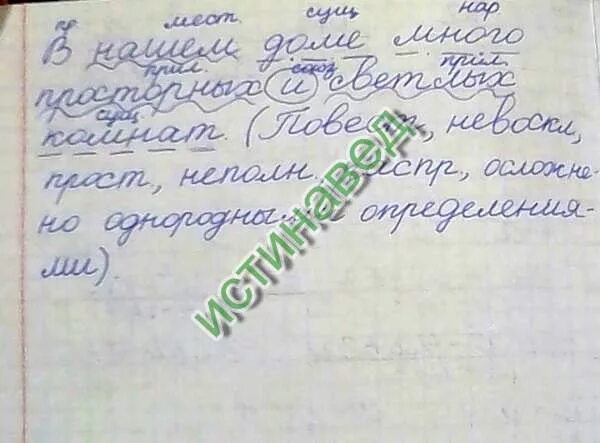 пр. мест. сущ нар
В нашем доме много
прил. союз прил.
просторных и светлых
сущ
комнат. (Повест., невоскл,
прост., неполн. распр., осложне-
но однородными определения-
ми).
ИСТИНАВЕД